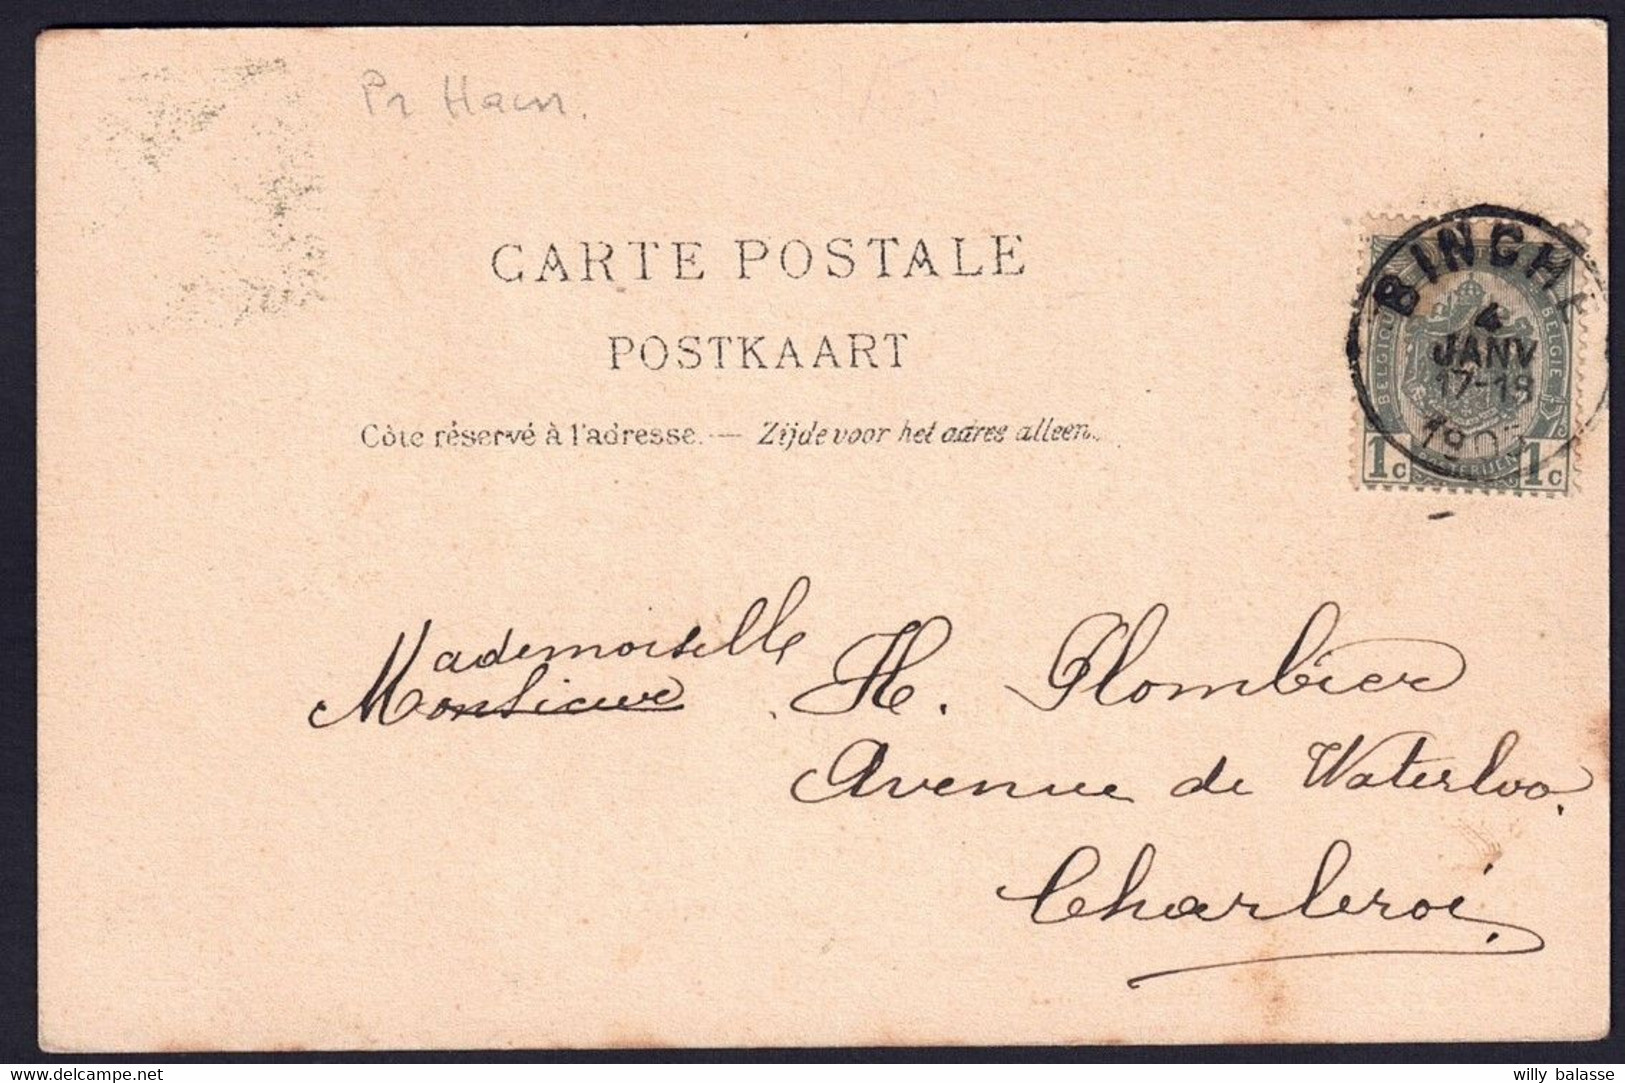 Pr Ham.
CARTE POSTALE
POSTKAART
Côte réservé à l'adresse. — Zijde voor het adres alleen.
BINCHE
4
JANV
17-18
BELGIQUE
BELGIE
POSTERIJEN
1c 1c
Mademoiselle
Monsieur H. Plombier
Avenue de Waterloo.
Charleroi.
willy balasse